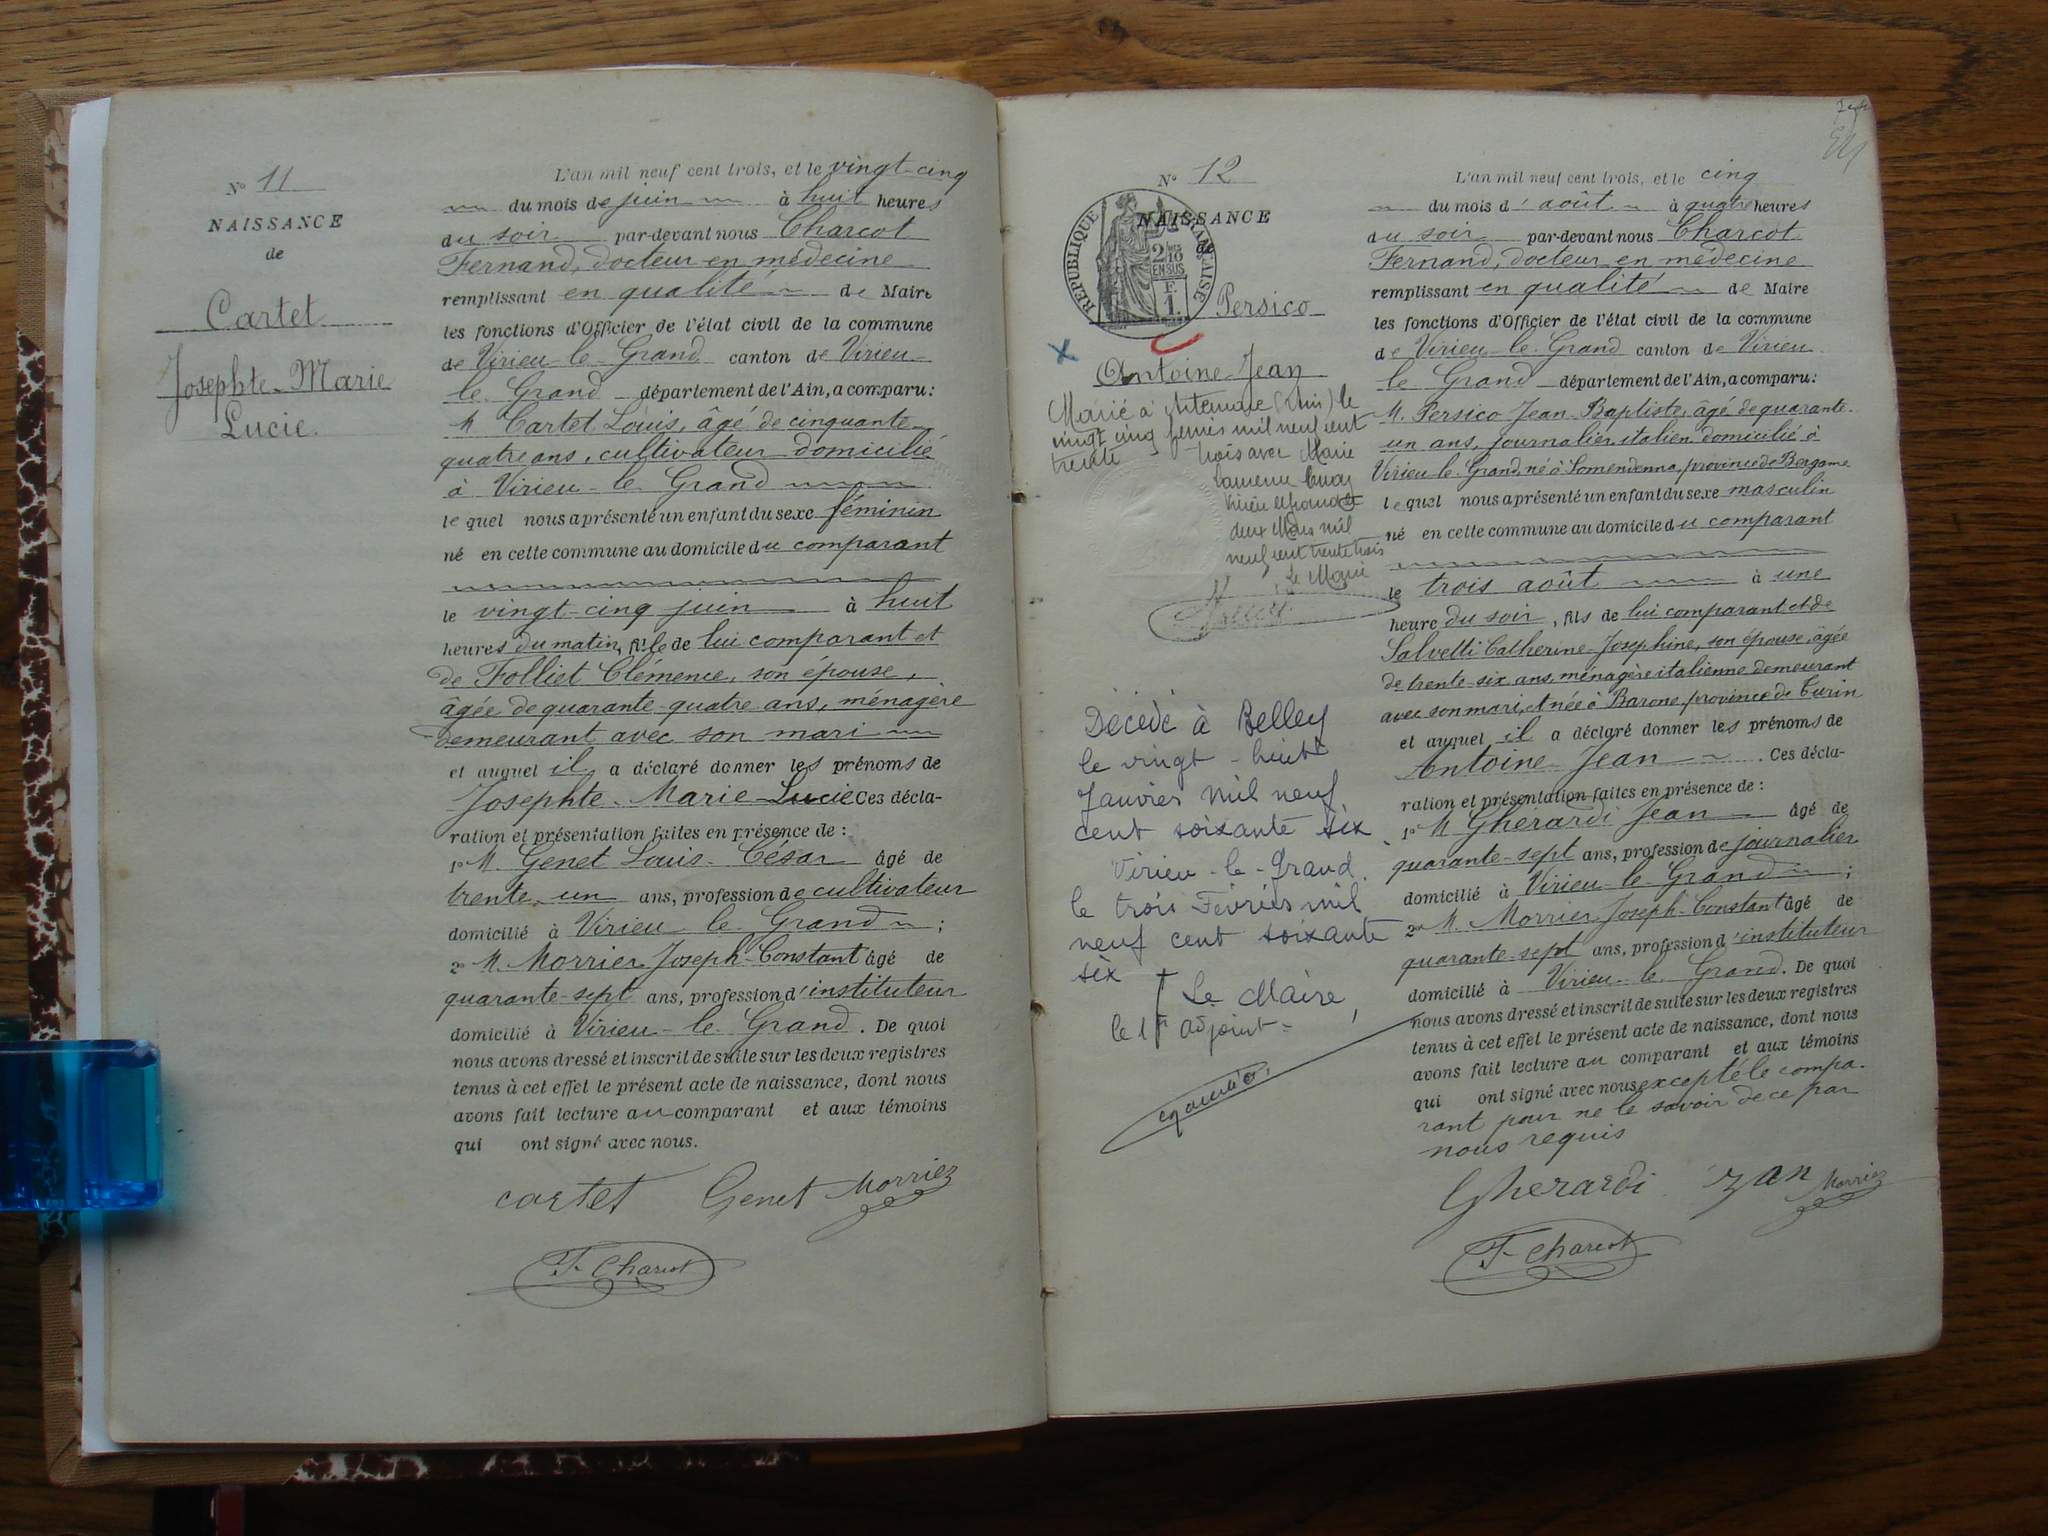 N° 11
NAISSANCE
de
Cartet
Josephte-Marie
Lucie.
L'an mil neuf cent trois, et le vingt-cinq
du mois de juin à huit heures
du soir par-devant nous Charcot
Fernand, docteur en médecine
remplissant en qualité de Maire
les fonctions d'Officier de l'état civil de la commune
de Virieu-le-Grand canton de Virieu-
le-Grand département de l'Ain, a comparu :
M Cartet Louis, âgé de cinquante-
quatre ans, cultivateur domicilié
à Virieu-le-Grand
lequel nous a présenté un enfant du sexe féminin
né en cette commune au domicile du comparant
le vingt-cinq juin à huit
heures du matin, fille de lui comparant et
de Folliet Clémence, son épouse,
âgée de quarante-quatre ans, ménagère
demeurant avec son mari
et auquel il a déclaré donner les prénoms de
Josephte-Marie-Lucie Ces décla-
ration et présentation faites en présence de :
1° M. Genet Louis-César âgé de
trente-un ans, profession de cultivateur
domicilié à Virieu-le-Grand ;
2° M. Morrier Joseph-Constant âgé de
quarante-sept ans, profession d'instituteur
domicilié à Virieu-le-Grand. De quoi
nous avons dressé et inscrit de suite sur les deux registres
tenus à cet effet le présent acte de naissance, dont nous
avons fait lecture au comparant et aux témoins
qui ont signé avec nous.
Cartet Genet Morrier
F. Charcot
N° 12
NAISSANCE
de
RÉPUBLIQUE FRANÇAISE
2/10
EN SUS
F.
1.
Persico
Antoine-Jean
Marié à Artemare (Ain) le
vingt cinq février mil neuf cent
trente trois avec Marie
Virieu le Grand le
deux Mars mil
neuf cent trente trois
Le Maire
Décédé à Belley
le vingt-huit
Janvier mil neuf
cent soixante six
Virieu-le-Grand.
le trois Février mil
neuf cent soixante
six
Le Maire,
le 1er adjoint
L'an mil neuf cent trois, et le cinq
du mois d'août à quatre heures
du soir par-devant nous Charcot
Fernand, docteur en médecine
remplissant en qualité de Maire
les fonctions d'Officier de l'état civil de la commune
de Virieu-le-Grand canton de Virieu
le Grand département de l'Ain, a comparu :
M. Persico Jean-Baptiste, âgé de quarante-
un ans, journalier italien domicilié à
Virieu-le-Grand, né à Somendenna, province de Bergame
lequel nous a présenté un enfant du sexe masculin
né en cette commune au domicile du comparant
le trois août à une
heure du soir, fils de lui comparant et de
Salvetti Catherine-Josephine, son épouse, âgée
de trente-six ans, ménagère italienne demeurant
avec son mari, et née à Barone, province de Turin
et auquel il a déclaré donner les prénoms de
Antoine-Jean. Ces décla-
ration et présentation faites en présence de :
1° M Ghérardi Jean âgé de
quarante-sept ans, profession de journalier
domicilié à Virieu-le-Grand ;
2° M. Morrier Joseph-Constant âgé de
quarante-sept ans, profession d'instituteur
domicilié à Virieu-le-Grand. De quoi
nous avons dressé et inscrit de suite sur les deux registres
tenus à cet effet le présent acte de naissance, dont nous
avons fait lecture au comparant et aux témoins
qui ont signé avec nous excepté le compa-
rant pour ne le savoir de ce par
nous requis
Gherardi Morrier
F. Charcot